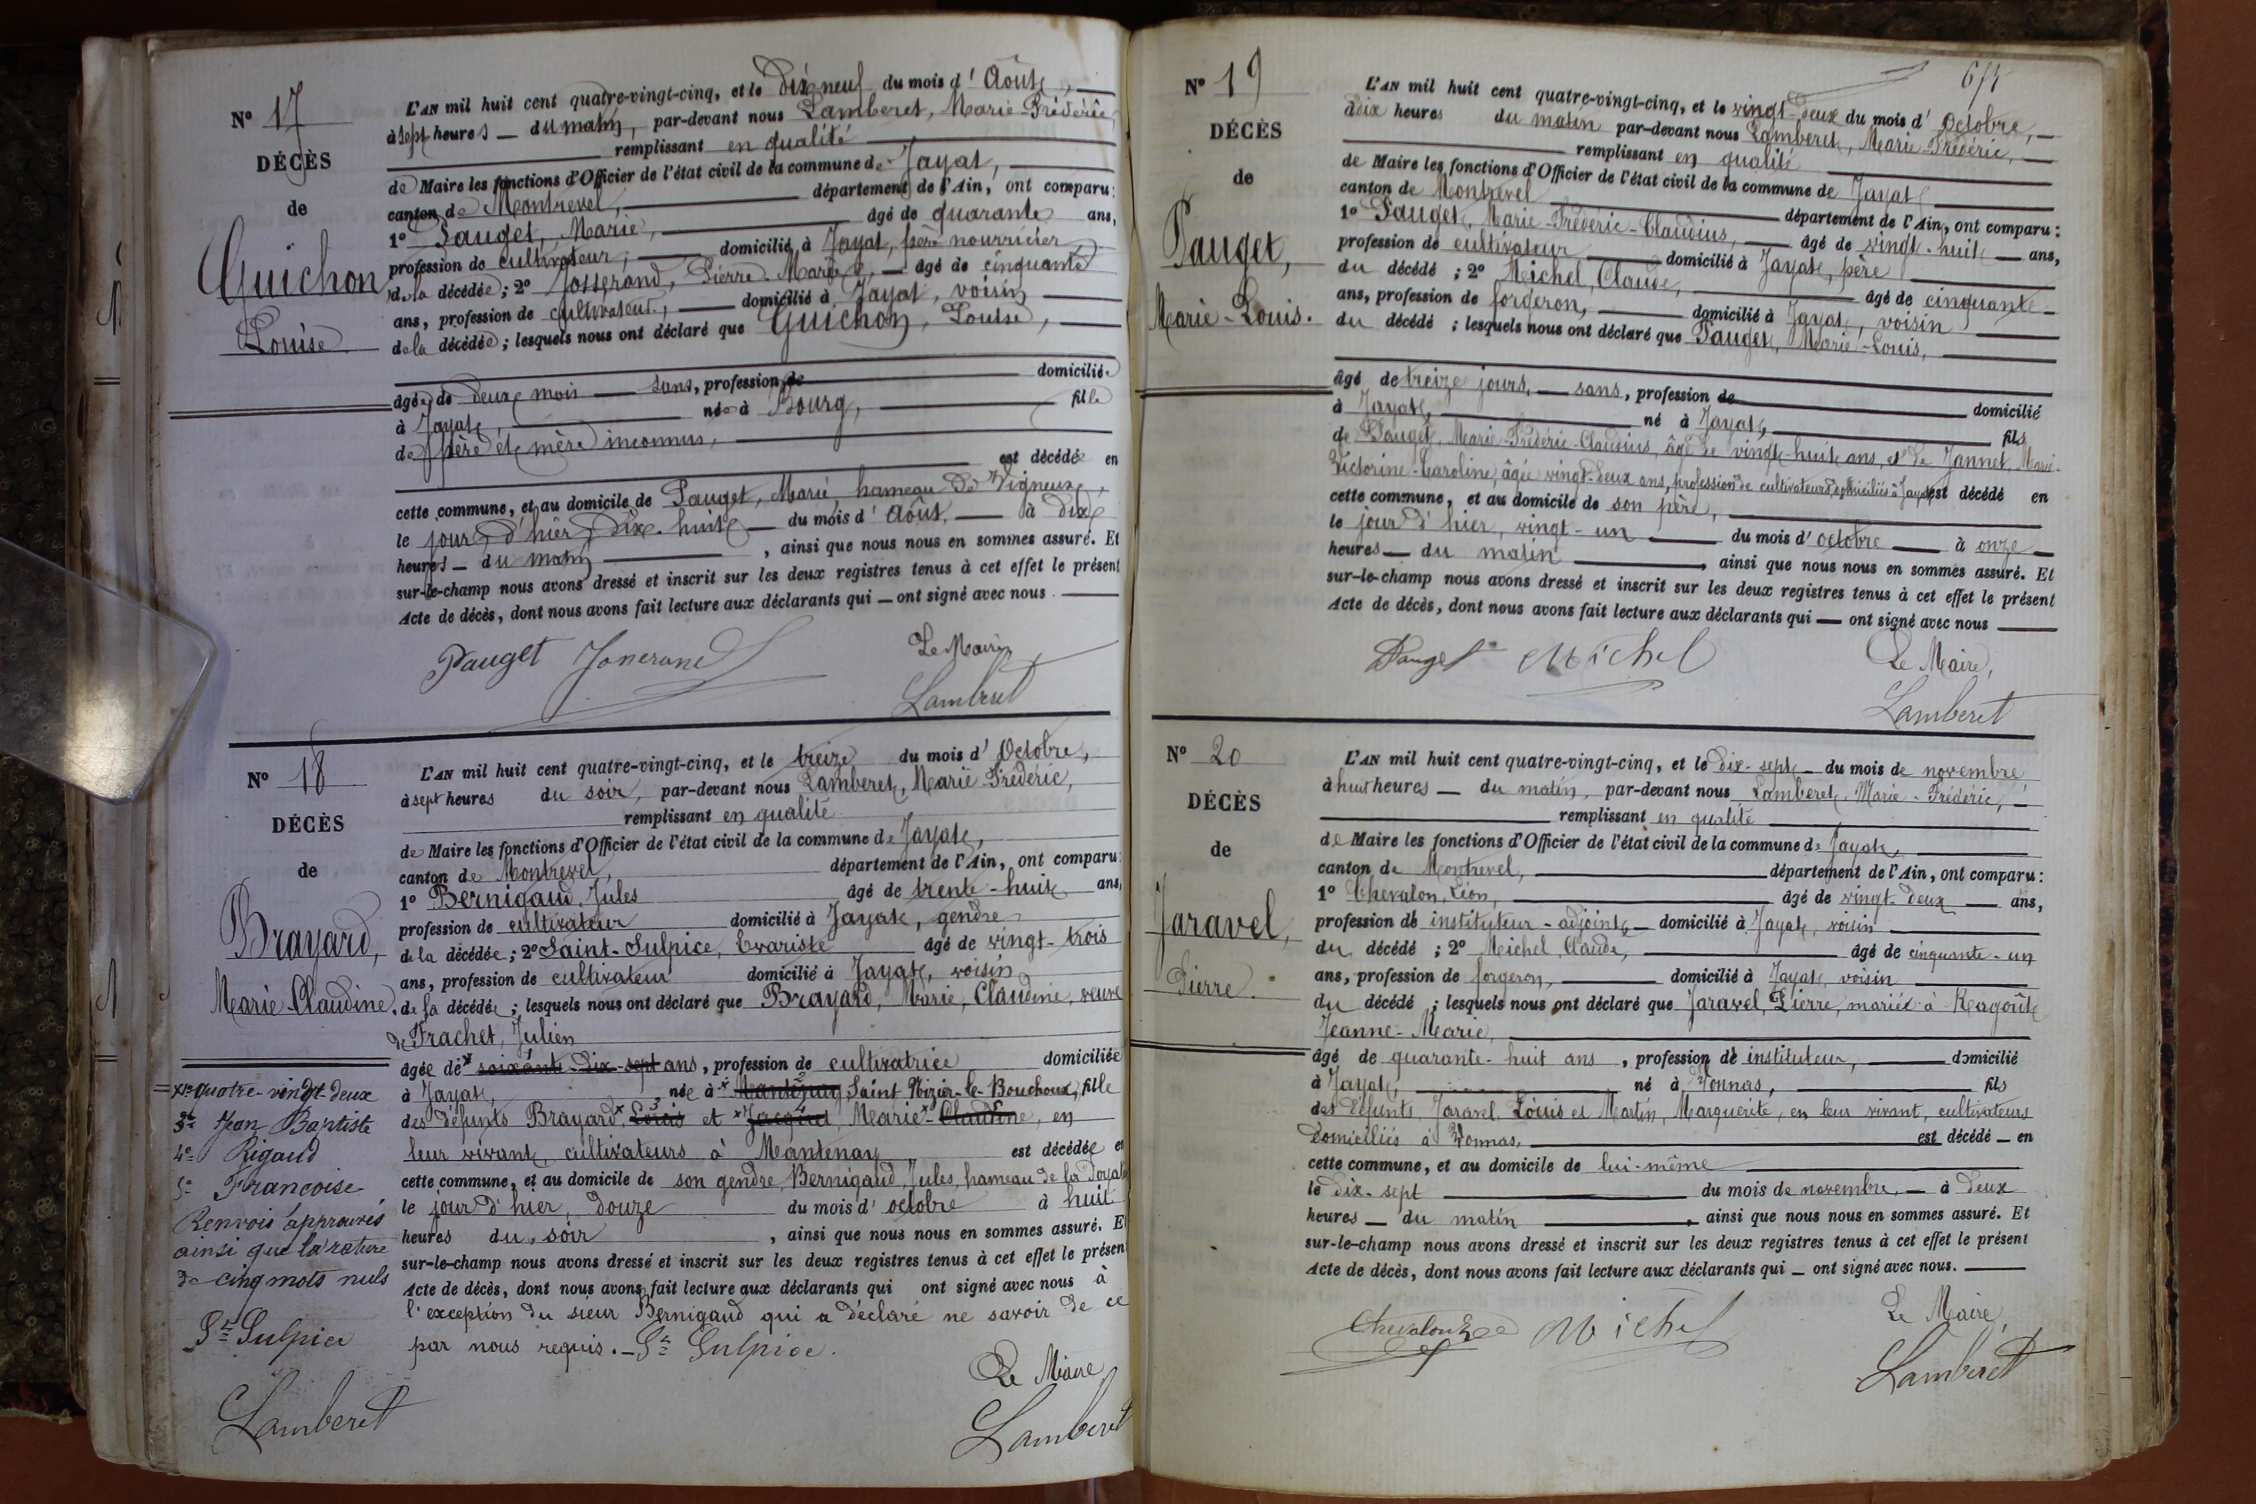 N° 17
DÉCÈS
de
Guichon
Louise
L'AN mil huit cent quatre-vingt-cinq, et le dix neuf du mois d'Août,
à sept heures du matin, par-devant nous Lamberet, Marie-Frédéric,
remplissant en qualité
de Maire les fonctions d'Officier de l'état civil de la commune de Jayat,
canton de Montrevel, département de l'Ain, ont comparu:
1° Pauget, Marie, âgé de quarante ans,
profession de cultivateur, domicilié à Jayat, père nourricier
de la décédée; 2° Josserand, Pierre Marie, âgé de cinquante
ans, profession de cultivateur, domicilié à Jayat, voisin
de la décédée; lesquels nous ont déclaré que Guichon, Louise,
âgée de deux mois sans, profession de domiciliée
à Jayat, née à Bourg, fille
de père et mère inconnus,
est décédée en
cette commune, et au domicile de Pauget, Marie, hameau de Vigneux,
le jour d'hier, dix-huit du mois d'Août, à dix
heures du matin, ainsi que nous nous en sommes assuré. Et
sur-le-champ nous avons dressé et inscrit sur les deux registres tenus à cet effet le présent
Acte de décès, dont nous avons fait lecture aux déclarants qui ont signé avec nous.
Pauget Josserand Le Maire
Lamberet
N° 18
DÉCÈS
de
Brayard,
Marie-Claudine.
L'AN mil huit cent quatre-vingt-cinq, et le treize du mois d'Octobre,
à sept heures du soir, par-devant nous Lamberet, Marie Frédéric,
remplissant en qualité
de Maire les fonctions d'Officier de l'état civil de la commune de Jayat,
canton de Montrevel, département de l'Ain, ont comparu:
1° Bernigaud, Jules âgé de trente-huit ans,
profession de cultivateur domicilié à Jayat, gendre
de la décédée; 2° Saint-Sulpice, Evariste âgé de vingt-trois
ans, profession de cultivateur domicilié à Jayat, voisin
de la décédée; lesquels nous ont déclaré que Brayard, Marie, Claudine, veuve
de Frachet, Julien
âgée de x soixante-dix-sept ans, profession de cultivatrice domiciliée
à Jayat, née à x Mantenay 2 Saint Nizier-le-Bouchoux, fille
des défunts Brayard, x Louis 3 et x Jacquet 4 Marie x Claudine 5, en
leur vivant, cultivateurs à Mantenay est décédée en
cette commune, et au domicile de son gendre, Bernigaud, Jules, hameau de la
le jour d'hier, douze du mois d'octobre à huit
heures du soir, ainsi que nous nous en sommes assuré. Et
sur-le-champ nous avons dressé et inscrit sur les deux registres tenus à cet effet le présent
Acte de décès, dont nous avons fait lecture aux déclarants qui ont signé avec nous à
l'exception du sieur Bernigaud qui a déclaré ne savoir de ce
par nous requis. St Sulpice.
Le Maire
Lamberet
quatre-vingt-deux
3° Jean Baptiste
4° Rigaud
5° Francoise
Renvois approuvés
ainsi que la rature
de cinq mots nuls
St Sulpice
Lamberet
674
N° 19
DÉCÈS
de
Pauget,
Marie-Louis.
L'AN mil huit cent quatre-vingt-cinq, et le vingt-deux du mois d'Octobre,
dix heures du matin par-devant nous Lamberet, Marie Frédéric,
remplissant en qualité
de Maire les fonctions d'Officier de l'état civil de la commune de Jayat
canton de Montrevel département de l'Ain, ont comparu:
1° Pauget, Marie-Frédéric-Claudius, âgé de vingt-huit ans,
profession de cultivateur domicilié à Jayat, père
du décédé; 2° Michel, Claude, âgé de cinquante
ans, profession de forgeron, domicilié à Jayat, voisin
du décédé; lesquels nous ont déclaré que Pauget, Marie-Louis,
âgé de treize jours, sans, profession de domicilié
à Jayat, né à Jayat, fils
de Pauget, Marie-Frédéric-Claudius, âgé de vingt-huit ans, et de Jannet, Marie-
Victorine-Caroline, âgée vingt-deux ans, profession de cultivateurs, domiciliés à Jayat est décédé en
cette commune, et au domicile de son père,
le jour d'hier, vingt-un du mois d'octobre à onze
heures du matin, ainsi que nous nous en sommes assuré. Et
sur-le-champ nous avons dressé et inscrit sur les deux registres tenus à cet effet le présent
Acte de décès, dont nous avons fait lecture aux déclarants qui ont signé avec nous
Pauget Michel Le Maire,
Lamberet
N° 20
DÉCÈS
de
Jaravel,
Pierre.
L'AN mil huit cent quatre-vingt-cinq, et le dix-sept du mois de novembre
à huit heures du matin, par-devant nous Lamberet, Marie-Frédéric,
remplissant en qualité
de Maire les fonctions d'Officier de l'état civil de la commune de Jayat,
canton de Montrevel, département de l'Ain, ont comparu:
1° Chevalon, Léon, âgé de vingt-deux ans,
profession de instituteur-adjoint, domicilié à Jayat, voisin
du décédé; 2° Michel, Claude, âgé de cinquante-un
ans, profession de forgeron, domicilié à Jayat, voisin
du décédé; lesquels nous ont déclaré que Jaravel, Pierre, marié à Ragoût
Jeanne-Marie,
âgé de quarante-huit ans, profession de instituteur, domicilié
à Jayat, né à Vonnas, fils
des défunts, Jaravel, Louis et Martin, Marguerite, en leur vivant, cultivateurs
domiciliés à Vonnas, est décédé en
cette commune, et au domicile de lui-même
le dix-sept du mois de novembre, à deux
heures du matin, ainsi que nous nous en sommes assuré. Et
sur-le-champ nous avons dressé et inscrit sur les deux registres tenus à cet effet le présent
Acte de décès, dont nous avons fait lecture aux déclarants qui ont signé avec nous.
Chevalon Michel Le Maire,
Lamberet